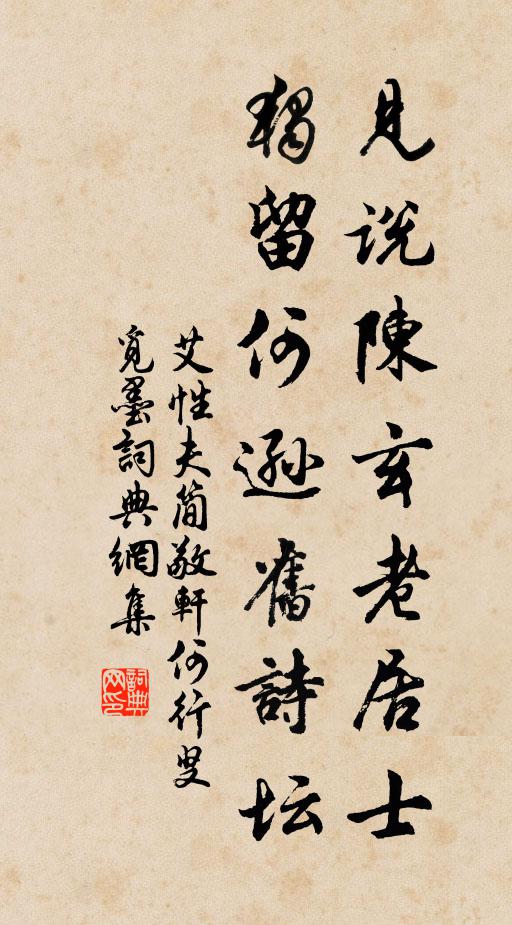 見說陳玄老居士
獨留何遜舊詩坛
艾性夫簡敬軒何行叟
覓墨詞典網集
詞典网印